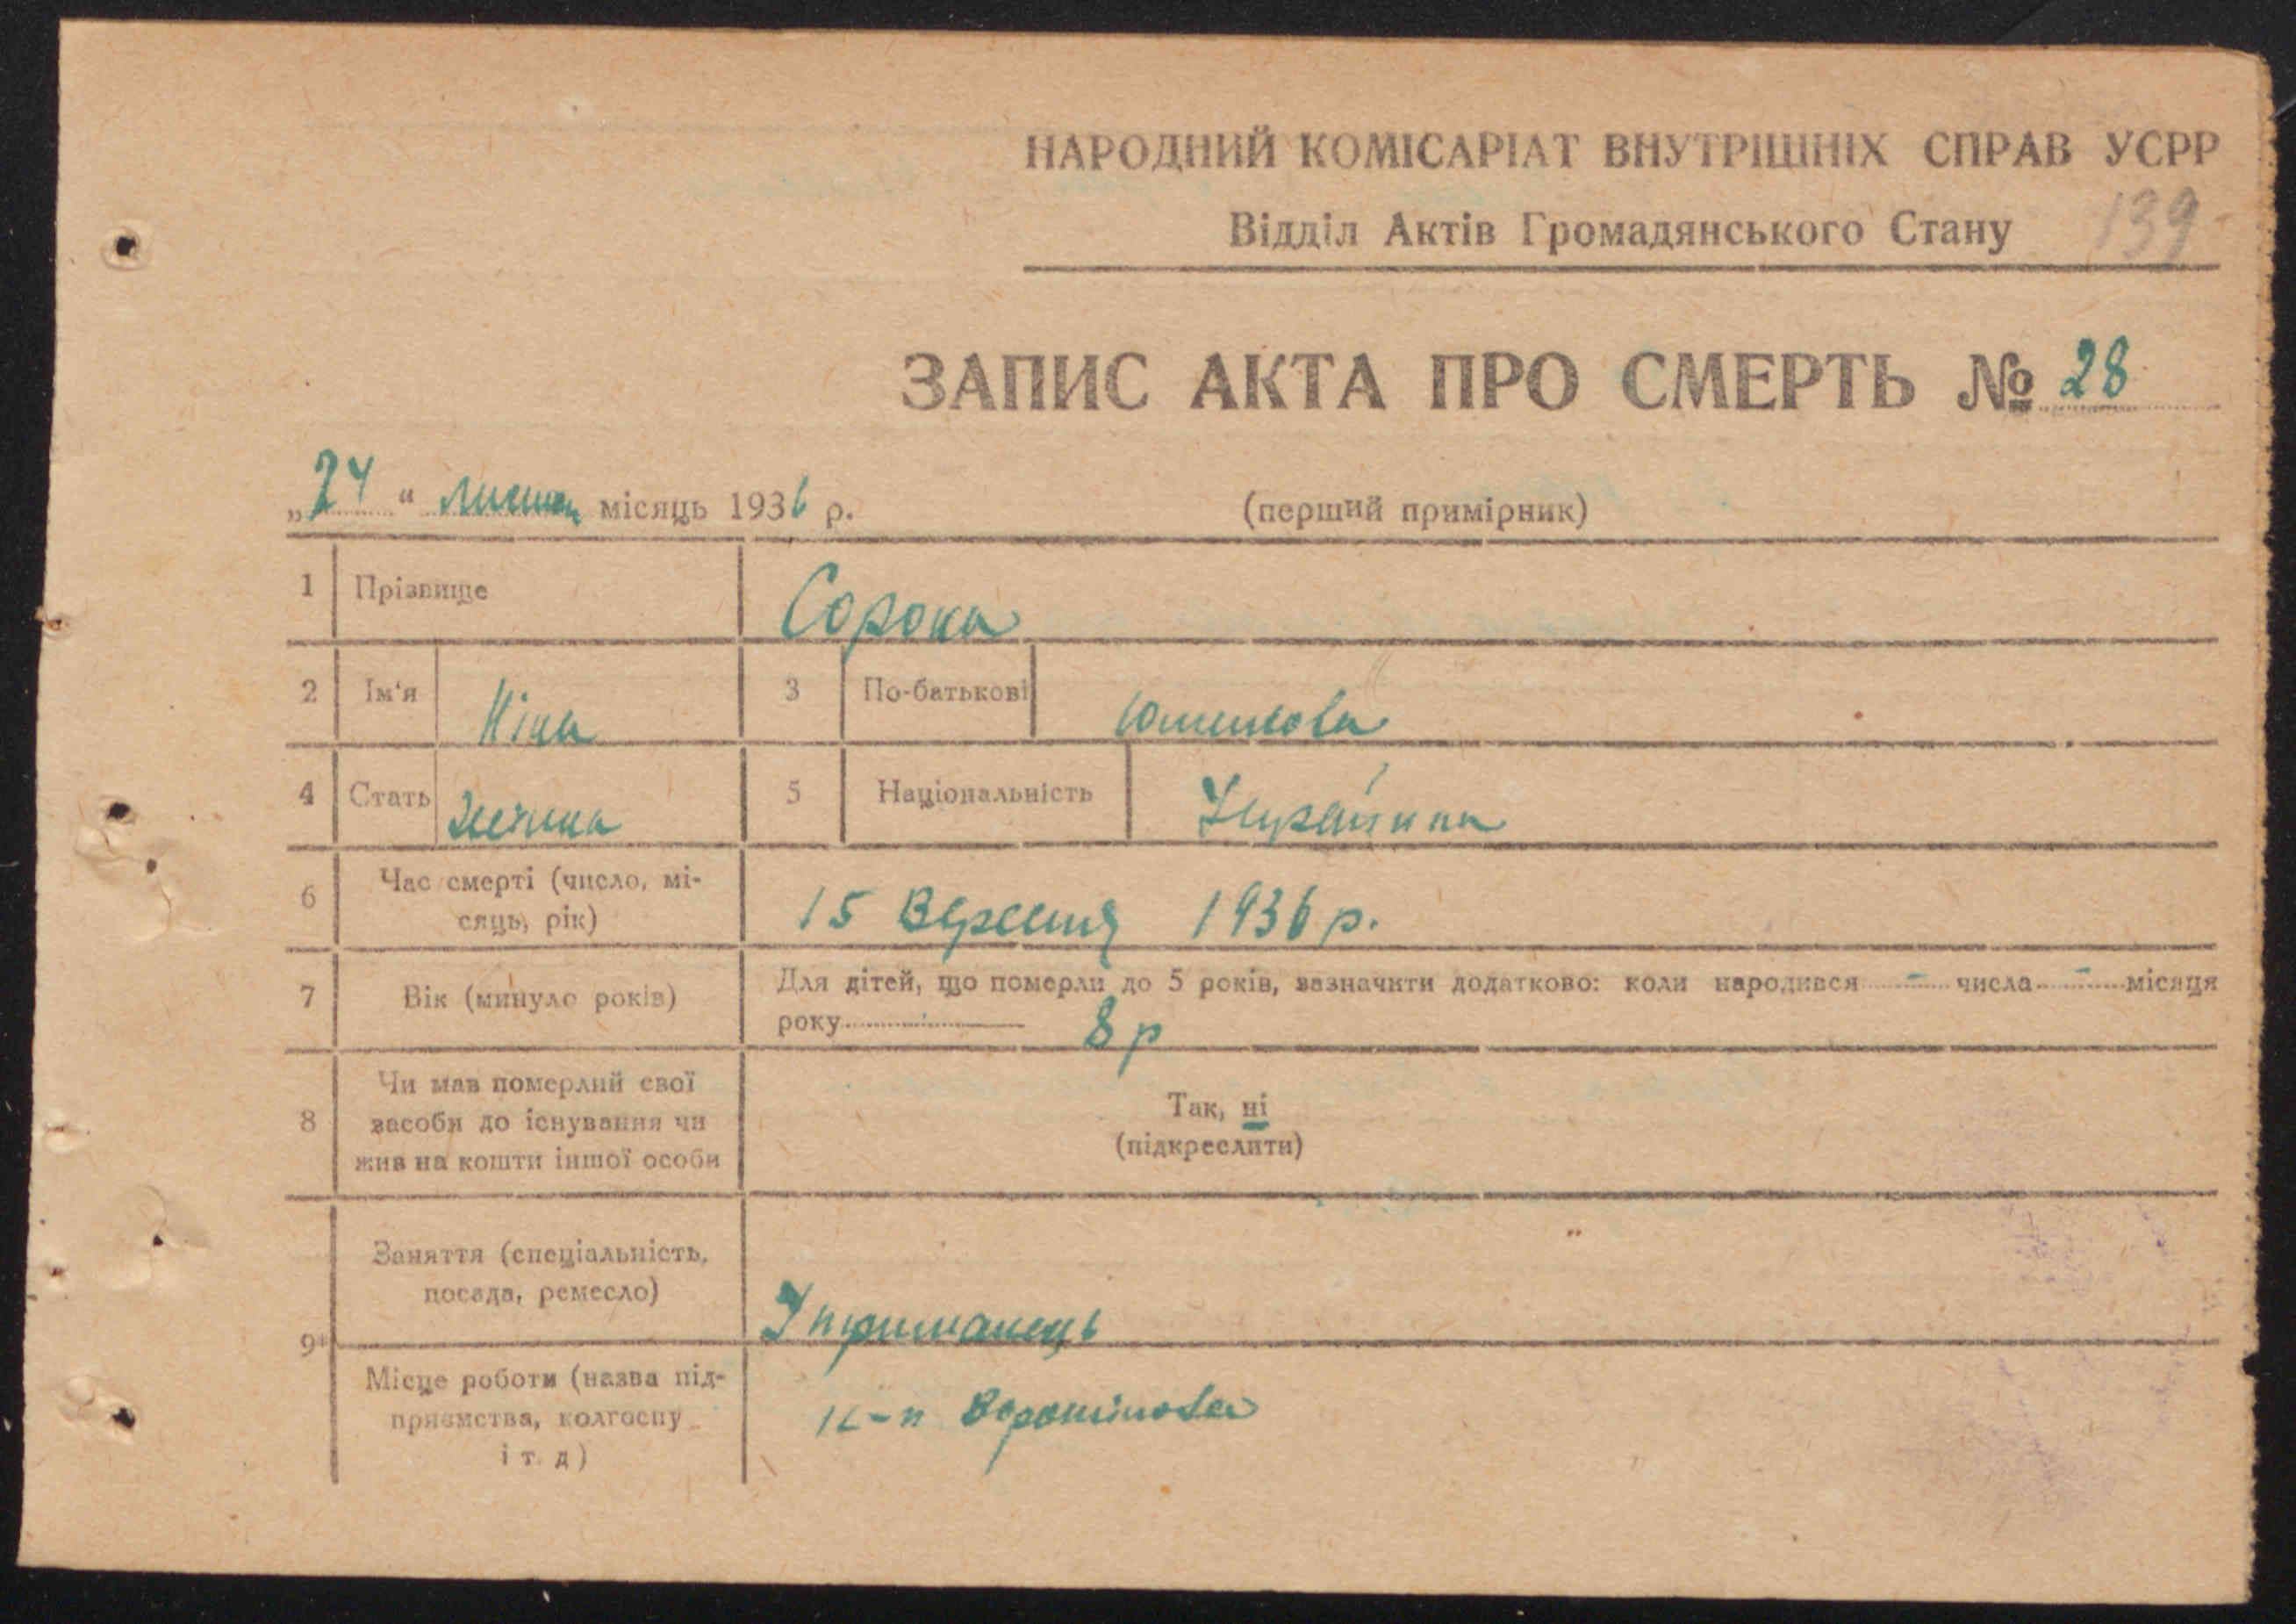 НАРОДНИЙ КОМІСАРІАТ ВНУТРІШНІХ СПРАВ УСРР
Відділ Актів Громадянського Стану 139
ЗАПИС АКТА ПРО СМЕРТЬ № 28
„24“ місяць 1936 р. (перший примірник)
1 Прізвище Сорока
2 Ім'я Ніна 3 По-батькові
4 Стать 5 Національність Українка
6 Час смерті (число, мі-
сяць, рік) 15 Вересня 1936 р.
7 Вік (минуло років) Для дітей, що померли до 5 років, зазначити додатково: коли народився - числа - місяця
року 8 р
8 Чи мав померлий свої
засоби до існування чи
жив на кошти іншої особи
Так, ні
(підкреслити)
9 Заняття (спеціальність,
посада, ремесло) Утриманець
Місце роботи (назва під-
приємства, колгоспу
і т. д) к-п Ворошилова